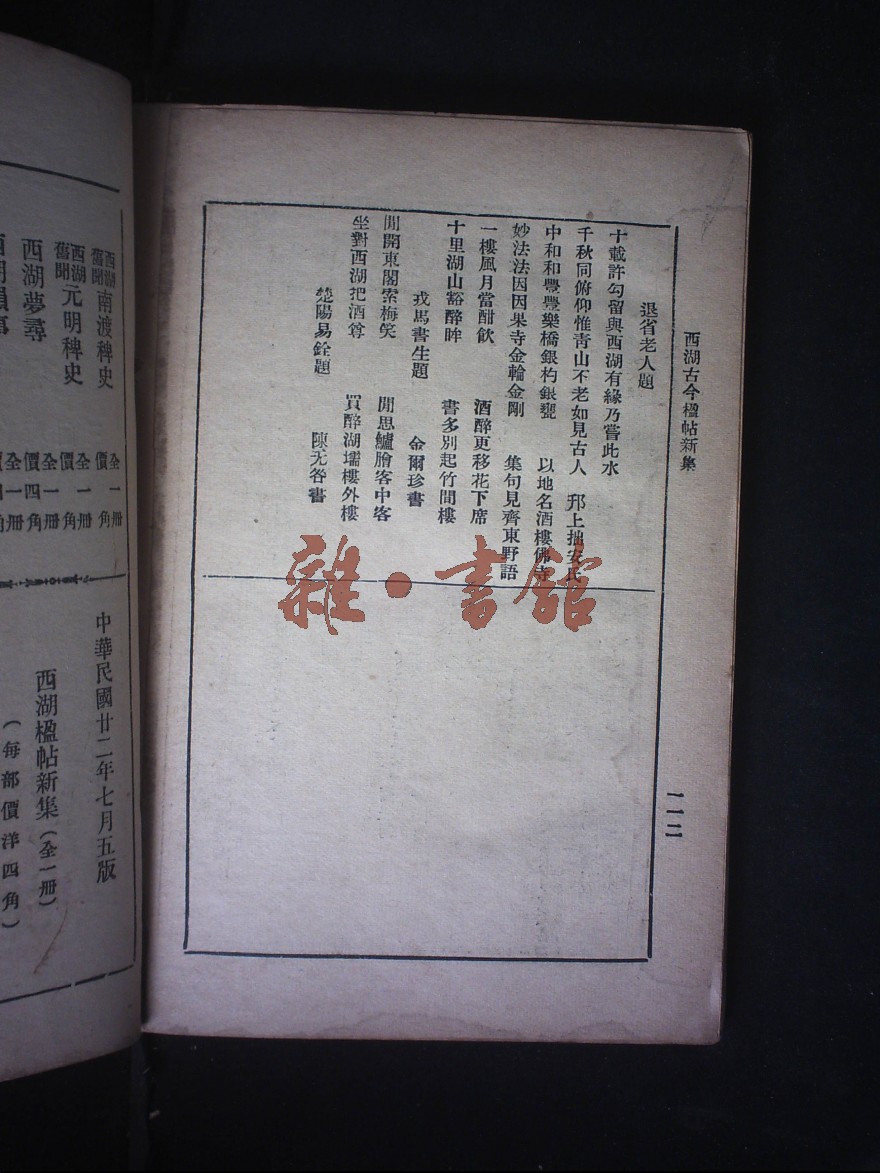 西湖古今楹帖新集
一一二
退省老人題
十載許勾留與西湖有緣乃嘗此水
千秋同俯仰惟青山不老如見古人　邗上拙安氏
中和和豐豐樂橋銀杓銀甕　以地名酒樓佛寺
妙法法因因果寺金輪金剛　集句見齊東野語
一樓風月當酣飲　酒醉更移花下席
十里湖山豁醉眸　書多別起竹間樓
戎馬書生題　金爾珍書
閒開東閣索梅笑　閒思鱸膾客中客
坐對西湖把酒尊　買醉湖壖樓外樓
楚陽易銓題　陳无咎書
雜·書館
西湖舊聞南渡稗史　全一冊　價一角
西湖舊聞元明稗史　全一冊　價一角
西湖夢尋　全一冊　價四角
中華民國廿二年七月五版
西湖楹帖新集（全一冊）
（每部價洋四角）